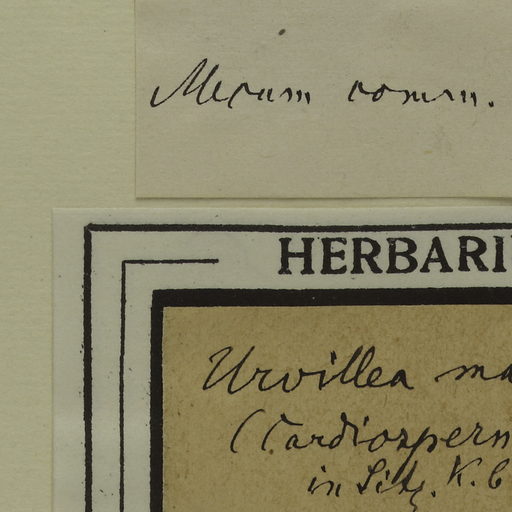 Mecum comm.
HERBARI
Urvillea ma
(Cardiosperm
in Sitz. K. C